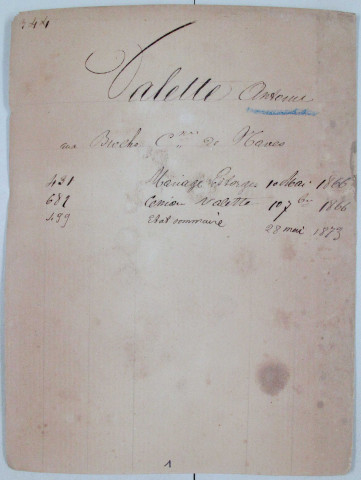 344
Valette Antoine
au Broche Cne de Naves
431 Mariage 10 Mai 1866
682 Cession Valette 10 7bre 1866
439 Etat sommaire
28 mai 1873
1